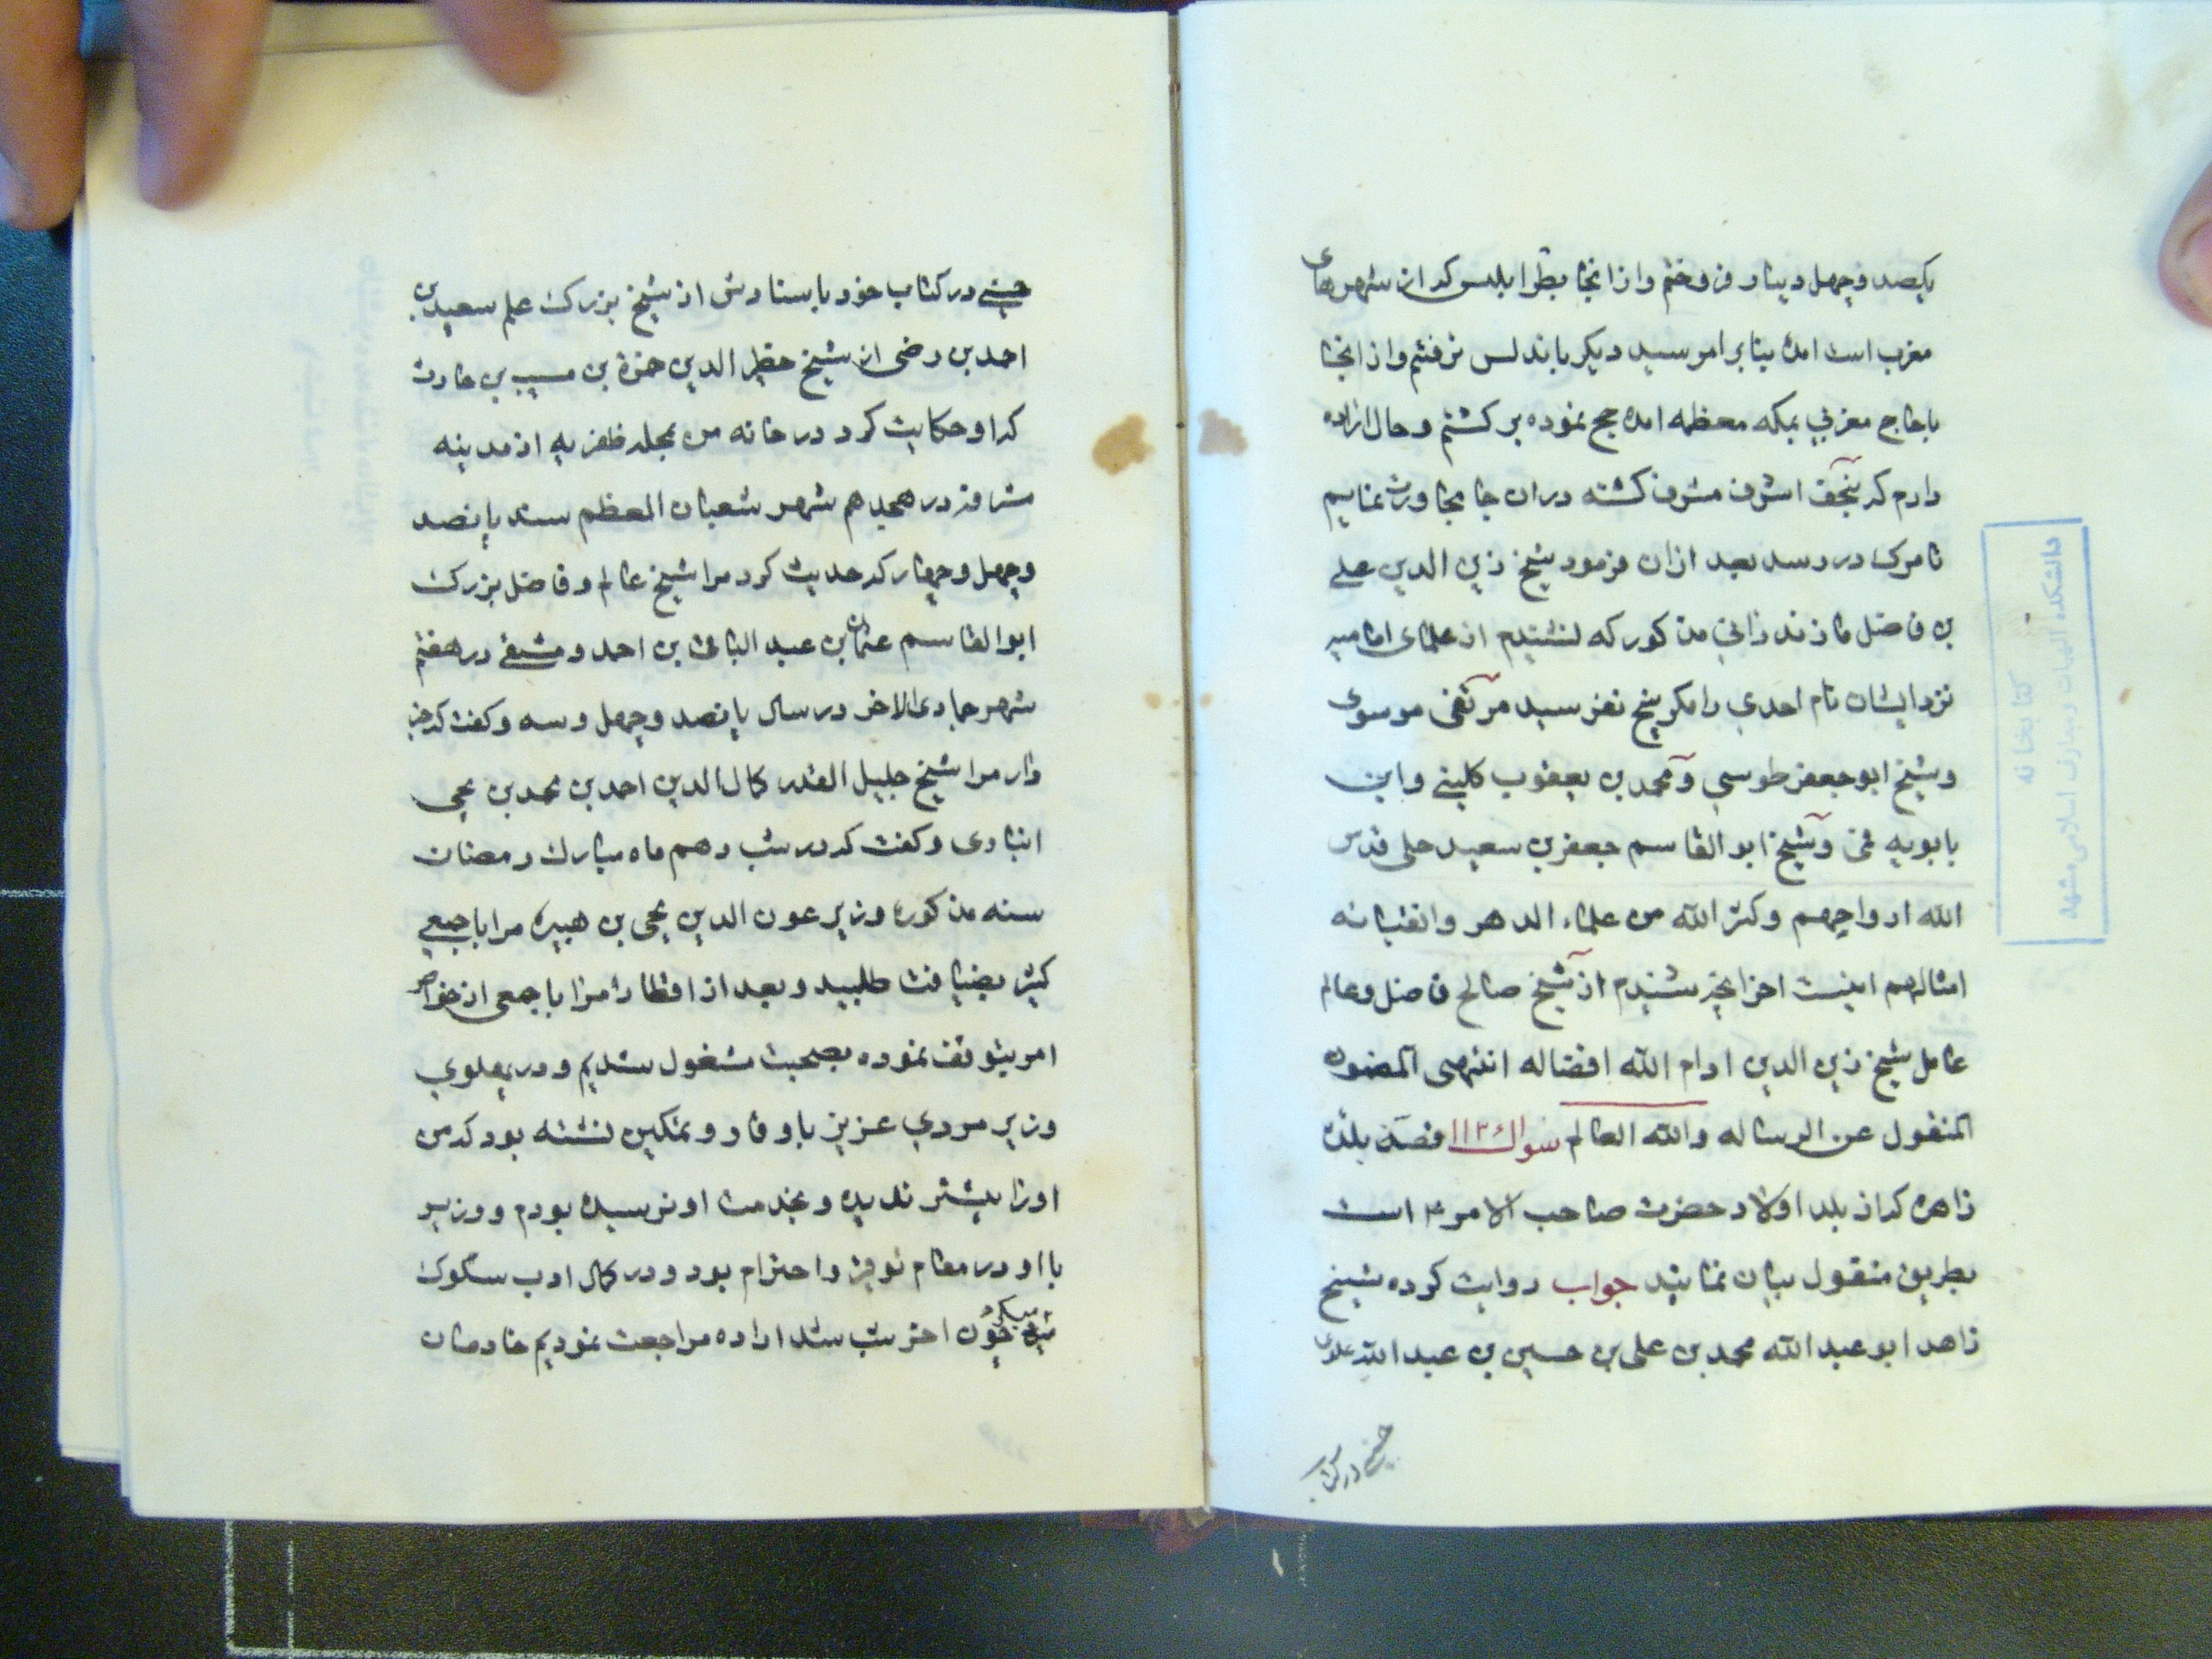 یکصد و چهل دینار فروختم و از انجا بطرابلس که از شهرهای
مغرب است امده بنا بر امر سید دیکر باندلس نرفتم و از انجا
با حاج مغربی بمکه معظمه امده حج نموده برکشتم و حال اراده
دارم که بنجف اشرف مشرف کشته در ان جا مجاورت نمایم
تا مرک در رسد بعد ازان فرمود شیخ زین الدین علی
بن فاضل مازندرانی مذکور که نشنیدم از علمای امامیه
نزد ایشان نام احدی را مکر پنج نفر سید مرتضی موسوی
و شیخ ابو جعفر طوسی و محمد بن یعقوب کلینی و ابن
بابویه قمی و شیخ ابو القاسم جعفر بن سعید حلی قدس
الله ارواحهم و کثر الله من علماء الدهر و اتقیائه
امثالهم اینست اخر انچه شنیدم از شیخ صالح فاضل و عالم
عامل شیخ زین الدین ادام الله افضاله انتهی المضمون
المنقول عن الرساله والله العالم سوال ۱۱۳ قصه بلده
زاهره که از بلد اولاد حضرت صاحب الامر ع است
بطریق منقول بیان نمایند جواب روایت کرده شیخ
زاهد ابو عبد الله محمد بن علی بن حسین بن عبد الله علوی
حسنی در کتاب
حسنی در کتاب خود باسنادش از شیخ بزرک علم سعید بن
احمد بن رضی از شیخ خطیر الدین حمزة بن مسیب بن حارث
که او حکایت کرد در خانه من بمحله ظفریه از مدینه
در هجدهم شهر شعبان المعظم سنه پانصد
و چهل و چهار که حدیث کرد مرا شیخ عالم و فاضل بزرک
ابو القاسم عثمان بن عبد الباقی بن احمد دمشقی در هفتم
شهر جمادی الاخر در سال پانصد و چهل و سه و کفت که خبر
داد مرا شیخ جلیل القدر کمال الدین احمد بن محمد بن یحیی
انباری و کفت که در شب دهم ماه مبارک رمضان
سنه مذکوره وزیر عون الدین یحیی بن هبیره مرا با جمعی
کثیر بضیافت طلبید و بعد از افطار امرا با جمعی از خواص
امر بتوقف نموده بصحبت مشغول شدیم و در پهلوی
وزیر مردی عزیز باوقار و تمکین نشسته بود که من
او را پیشتر ندیده و بخدمت او نرسیده بودم و وزیر
با او در مقام توقیر و احترام بود و در کمال ادب سلوک
میکرد چون اخر شب شد اراده مراجعت نمودیم خادمان
دانشکده الهیات و معارف اسلامی مشهد
کتابخانه